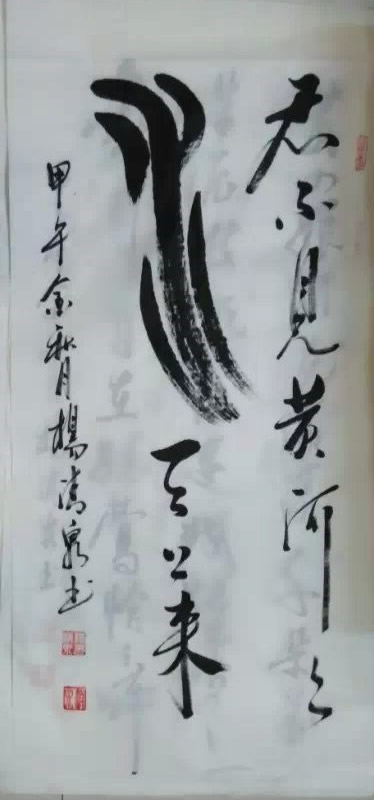 君不見黄河之
水天上来
甲午金秋月楊泉书